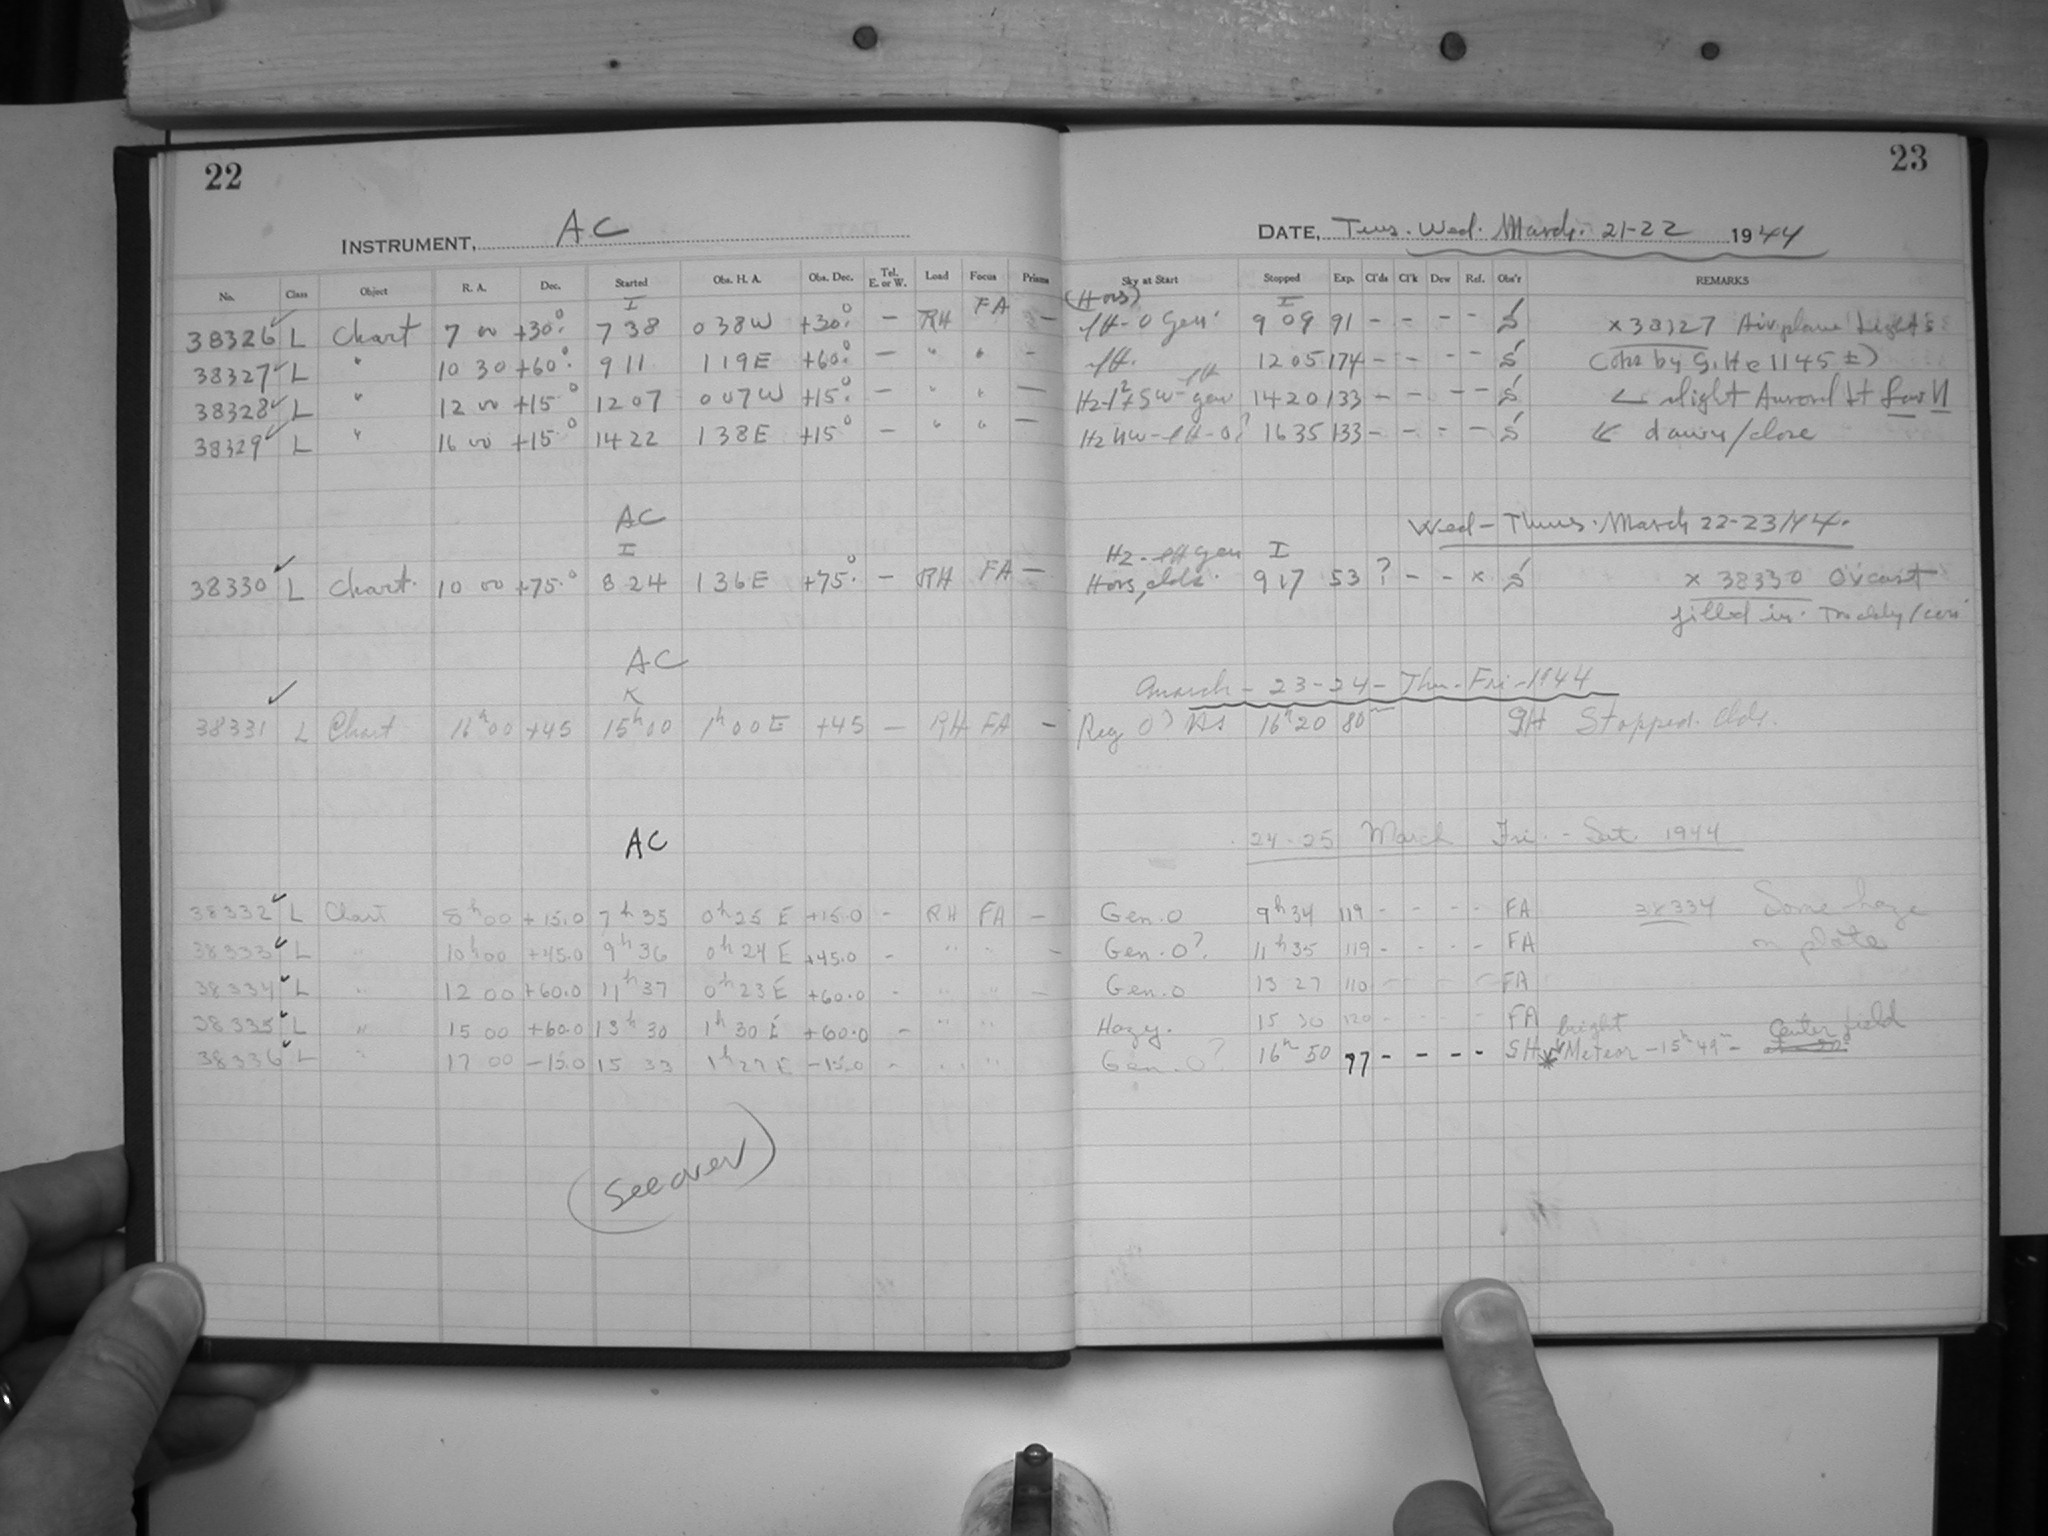 22
INSTRUMENT, AC
No. Class Object R. A. Dec. Started Obs. H. A. Obs. Dec. Tel. E. or W. Load Focus Prisms
I
38326 L Chart 7 00 +30° 7 38 0 38 W +30° - RH FA -
38327 L " 10 30 +60° 9 11 1 19 E +60° - " " -
38328 L " 12 00 +15° 12 07 0 07 W +15° - " " -
38329 L " 16 00 +15° 14 22 1 38 E +15° - " " -
AC
I
38330 L Chart. 10 00 +75° 8 24 1 36 E +75° - RH FA -
AC
K
38331 L Chart 16h00 +45 15h00 1h00 E +45 - RH FA -
AC
38332 L Chart 8h00 +15.0 7h35 0h25 E +15.0 - RH FA -
38333 L " 10h00 +45.0 9h36 0h24 E +45.0 - " " -
38334 L " 12 00 +60.0 11h37 0h23 E +60.0 - " " -
38335 L " 15 00 +60.0 13h30 1h30 E +60.0 - " "
38336 L " 17 00 -15.0 15 33 1h27 E -15.0 - " "
(See over)
23
DATE, Tues. Wed. March. 21-22 1944
Sky at Start Stopped Exp. Cl'ds Cl'k Dew Ref. Obs'r REMARKS
I
9 09 91 - - - - S x 38327 Airplane Lights
12 05 174 - - - - S (obs by G.H @ 1145 ±)
14 20 133 - - - - S ← slight Auroral Lt Low N
16 35 133 - - - - S ← dawn/close
Wed - Thurs. March 22-23/44.
Hz - gen I
9 17 53 ? - - x S x 38330 Ov'cast
filled in.
March - 23-24 - Thu. Fri - 1944
16h20 80m GH Stopped. Clds.
24-25 March Fri. - Sat. 1944
Gen. O 9h34 119 - - - - FA 38334 Some haze
Gen. O? 11h35 119 - - - - FA on plate
Gen. O 13 27 110 - - - - FA
Hazy. 15 30 120 - - - - FA bright Center field
Gen. O? 16h50 77 - - - - SH * Meteor - 15h49m -